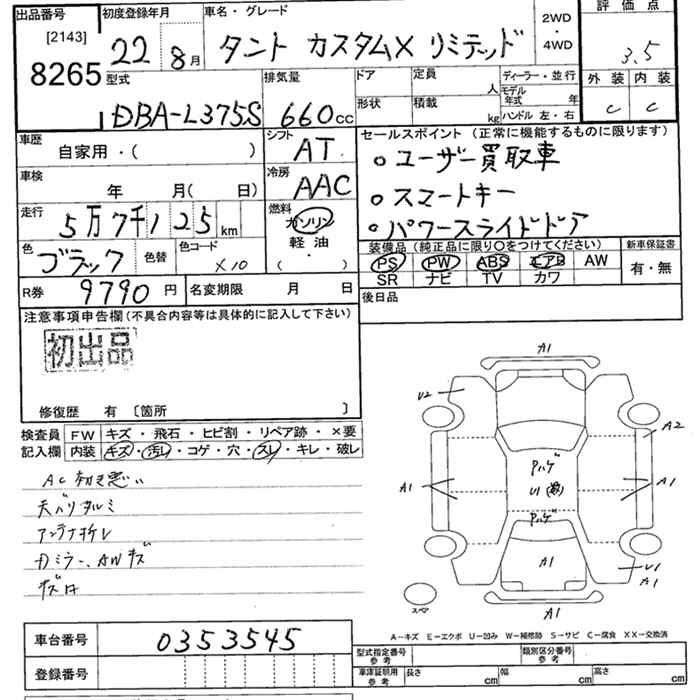 出品番号
[2143]
8265
初度登録年月
22年 8月
車名・グレード
タント カスタムX リミテッド
2WD
・
4WD
評価点
3.5
外装 内装
C C
型式
DBA-L375S
排気量
660 CC
ドア
形状
定員 人
積載 kg
ディーラー・並行
モデル年式 年
ハンドル 左・右
車歴
自家用・( )
シフト
AT
車検
年 月( 日)
冷房
AAC
走行
5万7千125 km
燃料
ガソリン
軽油
・
( )
色
ブラック
色替
色コード
X10
R券 9790円
名変期限 月 日
セールスポイント(正常に機能するものに限ります)
○ユーザー買取車
○スマートキー
○パワースライドドア
装備品(純正品に限り○をつけてください)
PS PW ABS エアB AW
SR ナビ TV カワ
新車保証書
有・無
後日品
注意事項申告欄(不具合内容等は具体的に記入して下さい)
初出品
修復歴 有 〔箇所 〕
検査員 FW キズ・飛石・ヒビ割・リペア跡・×要
記入欄 内装 キズ・汚レ・コゲ・穴・スレ・キレ・破レ
AC 効き悪い
天バリタルミ
アンテナオレ
ドミラー、AWキズ
A1
U2
A2
Pハゲ
U1
A1
A1
Pハゲ
A1
U1
A1
スペア
A1
A−キズ E−エクボ U−凹み W−補修跡 S−サビ C−腐食 XX−交換済
車台番号 0353545
登録番号
型式指定番号
参考
類別区分番号
参考
車庫証明用
参考
長さ cm
幅 cm
高さ cm